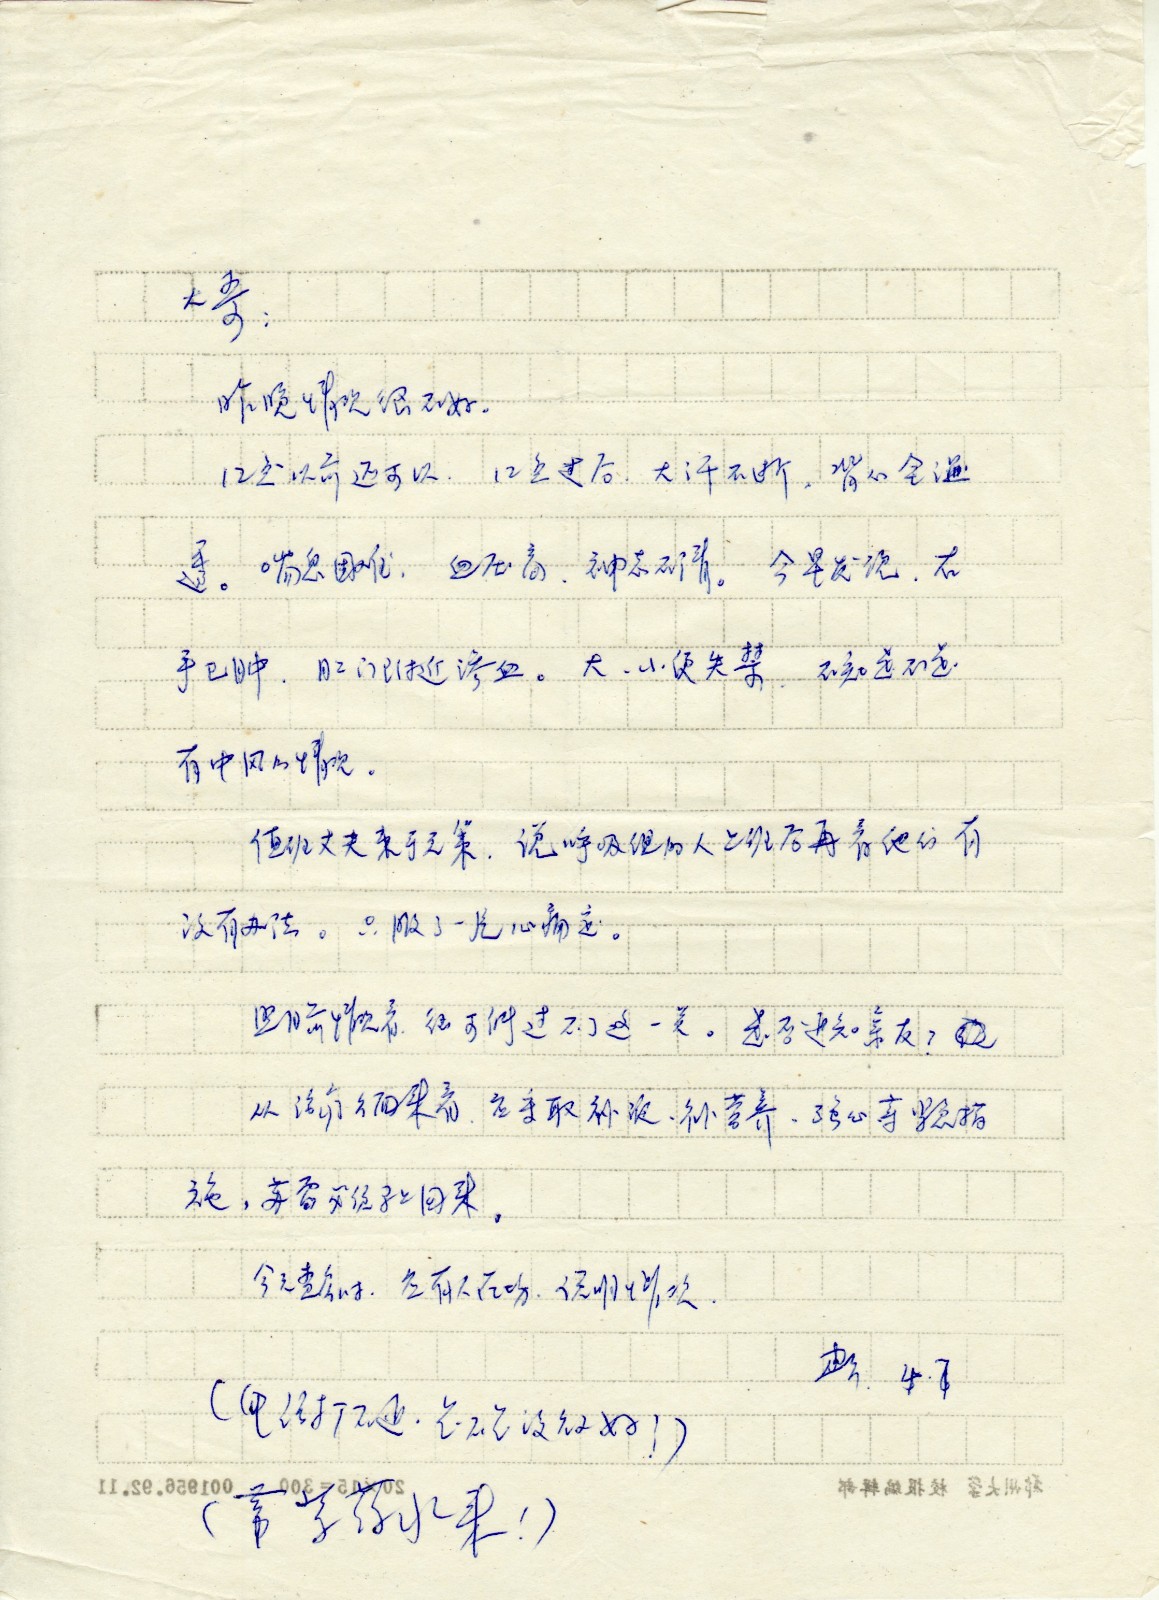 大哥:
昨晚情况很不好。
12点以前还可以．12点过后．大汗不断，背心全湿
透。喘息困难．血压高、神志不清。今早发现、右
手已肿．肛门附近渗血。大、小便失禁．不知是不是
有中风的情况。
值班丈夫束手无策．说呼吸组的人上班后再看他们有
没有办法。只服了一片心痛定。
照目前情况看．很可能过不了这一关。是否通知亲友?
从治疗方面来看．应采取补液、补营养、强心等紧急措
施，
今天查房时．应有人在场．说明情况．
(电话打不通．会不会没放好!)
(带 药水来!)
20×15=300 001956.92.11
郑州大学 校报编辑部